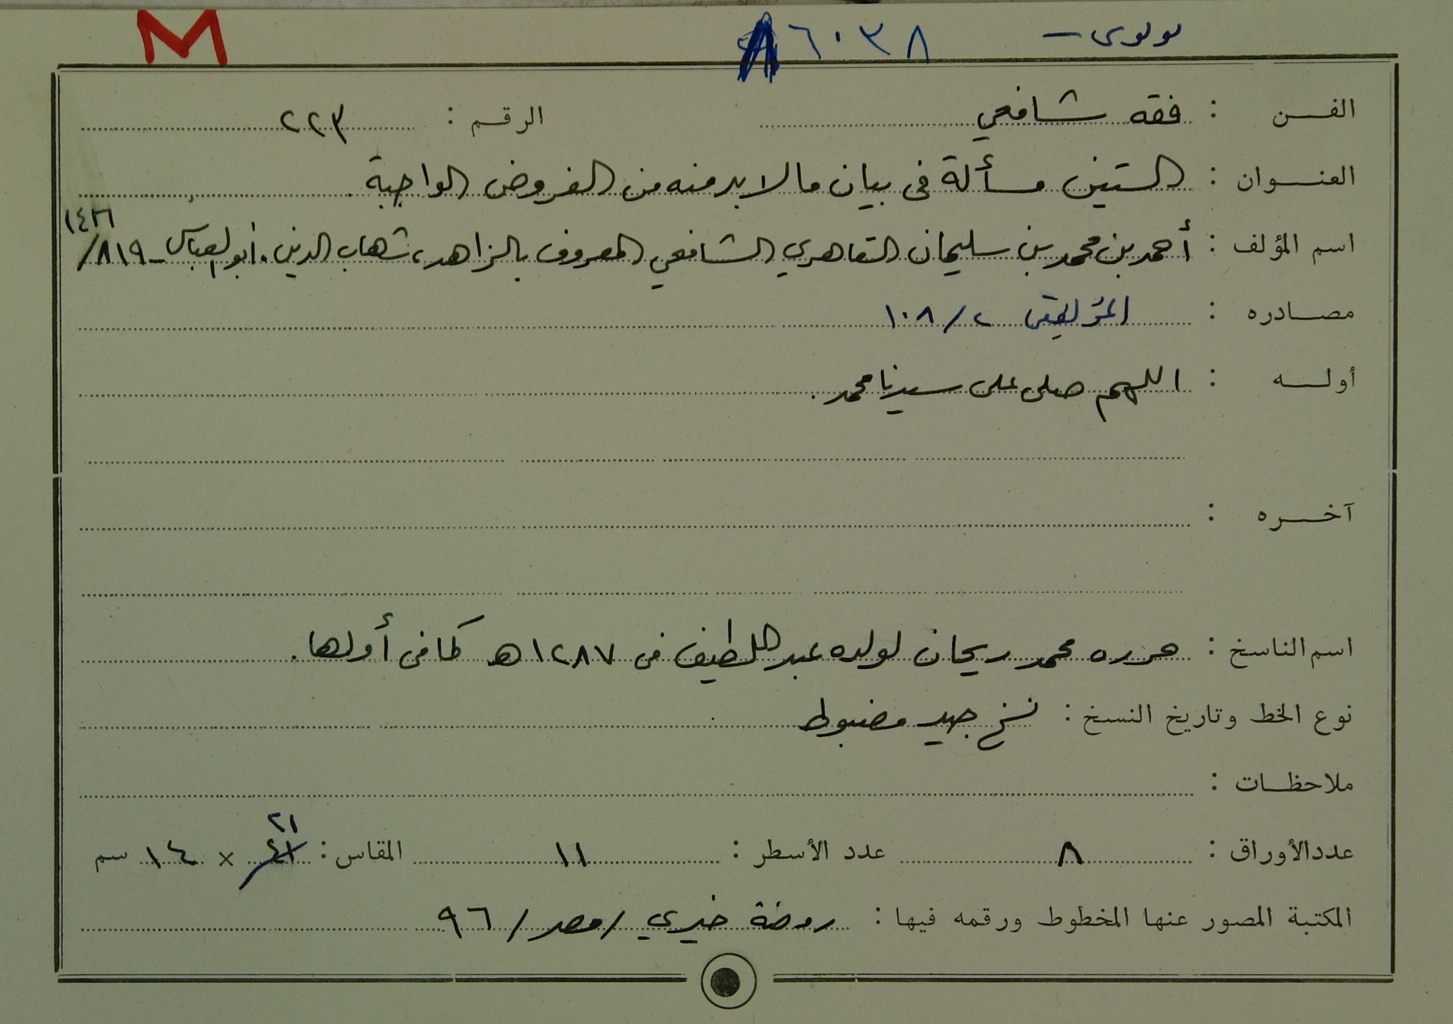 M ٨٦٠٣٨
الفن : فقه شافعي الرقم : ٢٢٣
العنوان : الستين مسألة في بيان ما لا بد منه من الفروض الواجبة .
١٤١٦
اسم المؤلف : أحمد بن محمد بن سليمان القاهري الشافعي المعروف بالزاهد، شهاب الدين. أبو العباس - ٨١٩/
مصادره : المؤلفين ٢/١٠٨
أوله : اللهم صلى على سيدنا محمد .
آخره :
اسم الناسخ : حرره محمد ريحان لولده عبد اللطيف في ١٢٨٧ هـ كما في أولها .
نوع الخط وتاريخ النسخ : نسخ جيد مضبوط
ملاحظات :
عدد الأوراق : ٨ عدد الأسطر : ١١ المقاس : ٢١ × ١٤ سم
المكتبة المصور عنها المخطوط ورقمه فيها : روضة خيري / مصر / ٩٦